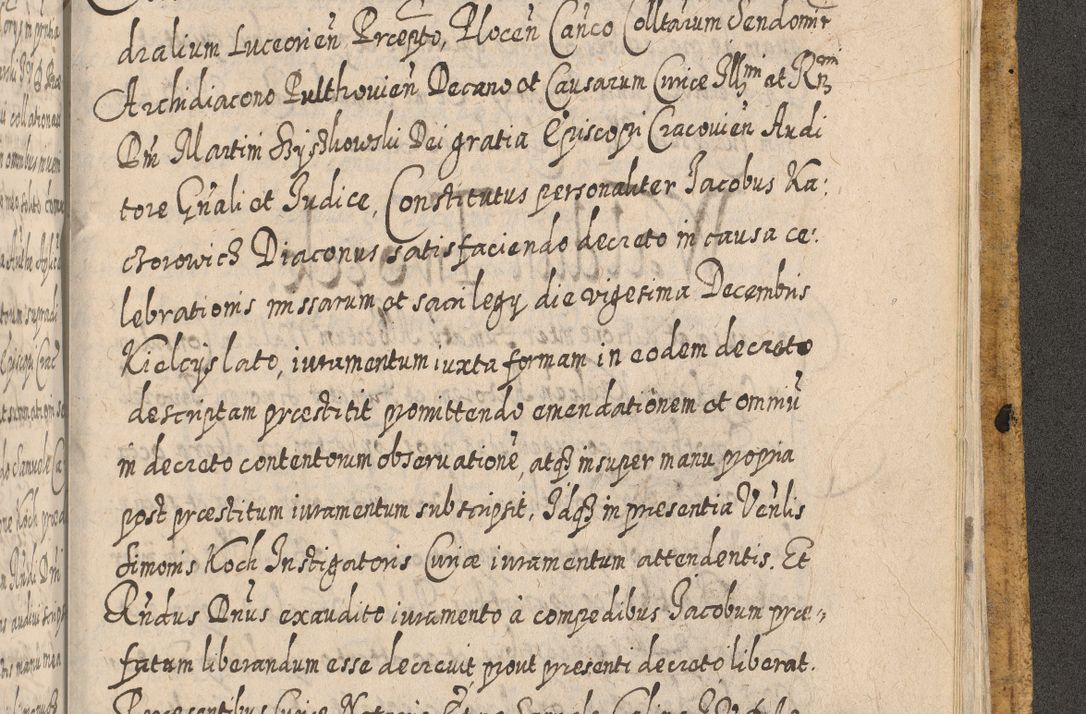 dralium Luceorien̄ Prepto, Plocen̄ Canco Colltarum Sendomr
Archidiacono Pulthovien̄ Decano et Causarum Curiæ Illmi et Rmi
Dni Martini Szyszkowski Dei gratia Episcopi Cracovien̄ Audi
tore Gn̄ali et Judice, Constitutus personaliter Jacobus Ka:
czorowicz Diaconus satisfaciendo decreto in causa ce:
lebrationis missarum et sacrilegy die vigesima Decembris
Kielcys lato, iuramentum iuxta formam in eodem decreto
descriptam præstitit promittendo emendationem et omniū
in decreto contentorum observationē, atq3 insuper manu propria
post præstitum iuramentum subscripsit, Idq3 in presentia Ven̄lis
Simonis Koch Instigatoris Curiæ iuramentum attendentis. Et
Rn̄dus Dn̄us exaudito iuramento à compedibus Jacobum præ:
fatum liberandum esse decrevit, prout presenti decreto liberat.